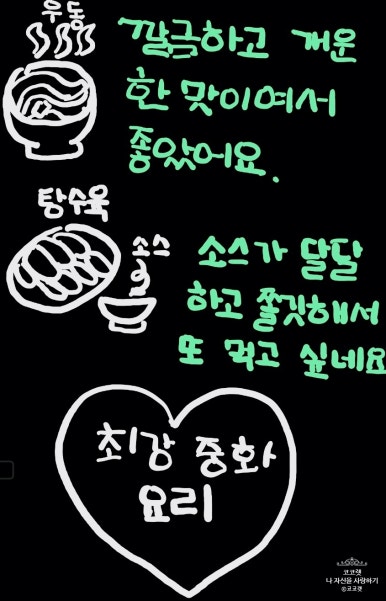 우동
깔금하고 개운
한 맛이여서
좋았어요.
탕수육
소스
소스가 달달
하고 쫄깃해서
또 먹고 싶네요
최강 중화
요리
코코렛
나 자신을 사랑하기
©코코렛